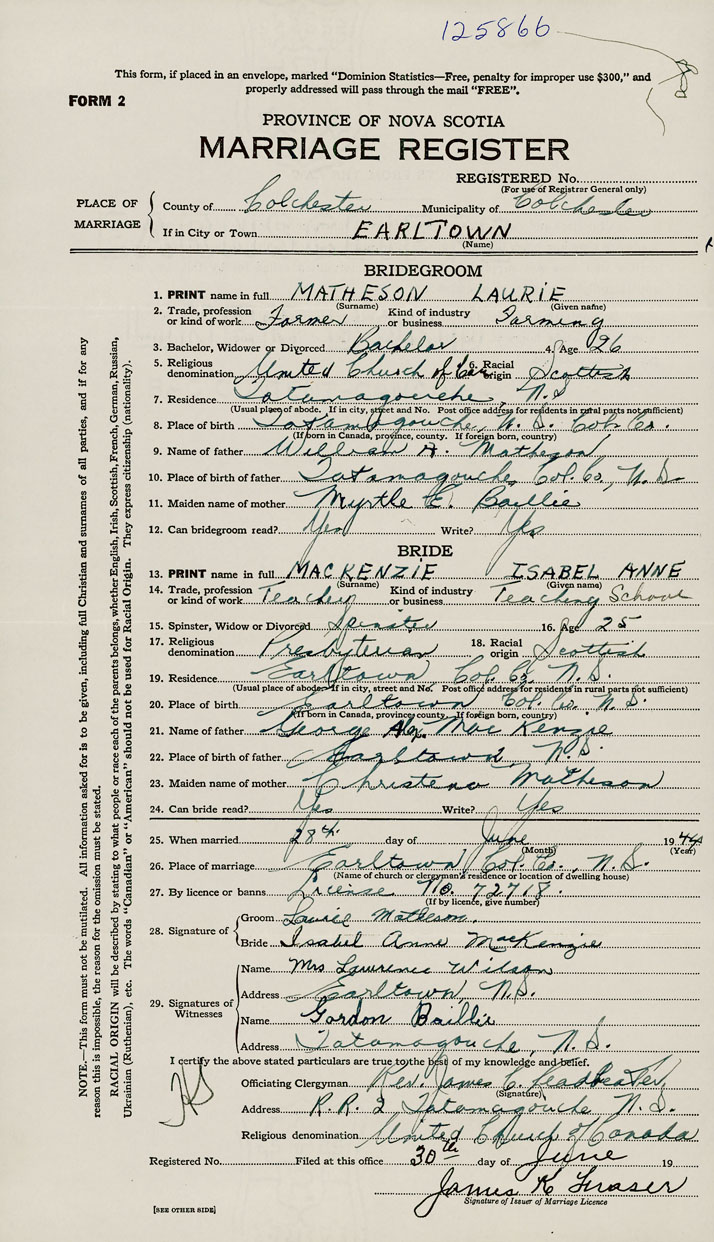 125866
This form, if placed in an envelope, marked "Dominion Statistics—Free, penalty for improper use $300," and
properly addressed will pass through the mail "FREE".
FORM 2
PROVINCE OF NOVA SCOTIA
MARRIAGE REGISTER
REGISTERED No.
(For use of Registrar General only)
PLACE OF MARRIAGE
County of Colchester Municipality of Colchester
If in City or Town EARLTOWN
(Name)
BRIDEGROOM
1. PRINT name in full MATHESON LAURIE
(Surname) (Given name)
2. Trade, profession or kind of work Farmer Kind of industry or business Farming
3. Bachelor, Widower or Divorced Bachelor 4. Age 26
5. Religious denomination United Church of Can. 6. Racial origin Scottish
7. Residence Tatamagouche, N.S.
(Usual place of abode. If in city, street and No. Post office address for residents in rural parts not sufficient)
8. Place of birth Tatamagouche, N.S. Col. Co.
(If born in Canada, province, county. If foreign born, country)
9. Name of father William A. Matheson
10. Place of birth of father Tatamagouche, Col. Co., N.S.
11. Maiden name of mother Myrtle E. Baillie
12. Can bridegroom read? Yes Write? Yes
BRIDE
13. PRINT name in full MACKENZIE ISABEL ANNE
(Surname) (Given name)
14. Trade, profession or kind of work Teacher Kind of industry or business Teaching School
15. Spinster, Widow or Divorced Spinster 16. Age 25
17. Religious denomination Presbyterian 18. Racial origin Scottish
19. Residence Earltown Col. Co. N.S.
(Usual place of abode. If in city, street and No. Post office address for residents in rural parts not sufficient)
20. Place of birth Earltown Col. Co. N.S.
(If born in Canada, province, county. If foreign born, country)
21. Name of father George Alex. MacKenzie
22. Place of birth of father Earltown, N.S.
23. Maiden name of mother Christena Matheson
24. Can bride read? Yes Write? Yes
25. When married 28th day of June 1944
(Month) (Year)
26. Place of marriage Earltown, Col. Co., N.S.
(Name of church or clergyman's residence or location of dwelling house)
27. By licence or banns License No. 72718.
(If by licence, give number)
28. Signature of
Groom Laurie Matheson.
Bride Isabel Anne MacKenzie
29. Signatures of Witnesses
Name Mrs Lawrence Wilson
Address Earltown, N.S.
Name Gordon Baillie
Address Tatamagouche, N.S.
I certify the above stated particulars are true to the best of my knowledge and belief.
Officiating Clergyman Rev. James C. Leadbeater,
(Signature)
Address R.R. 2, Tatamagouche N.S.
Religious denomination United Church of Canada
Registered No. Filed at this office 30th day of June 19
James K Fraser
Signature of Issuer of Marriage Licence
[SEE OTHER SIDE]
NOTE.—This form must not be mutilated. All information asked for is to be given, including full Christian and surnames of all parties, and if for any
reason this is impossible, the reason for the omission must be stated.
RACIAL ORIGIN will be described by stating to what people or race each of the parents belongs, whether English, Irish, Scottish, French, German, Russian,
Ukrainian (Ruthenian), etc. The words "Canadian" or "American" should not be used for Racial Origin. They express citizenship (nationality).